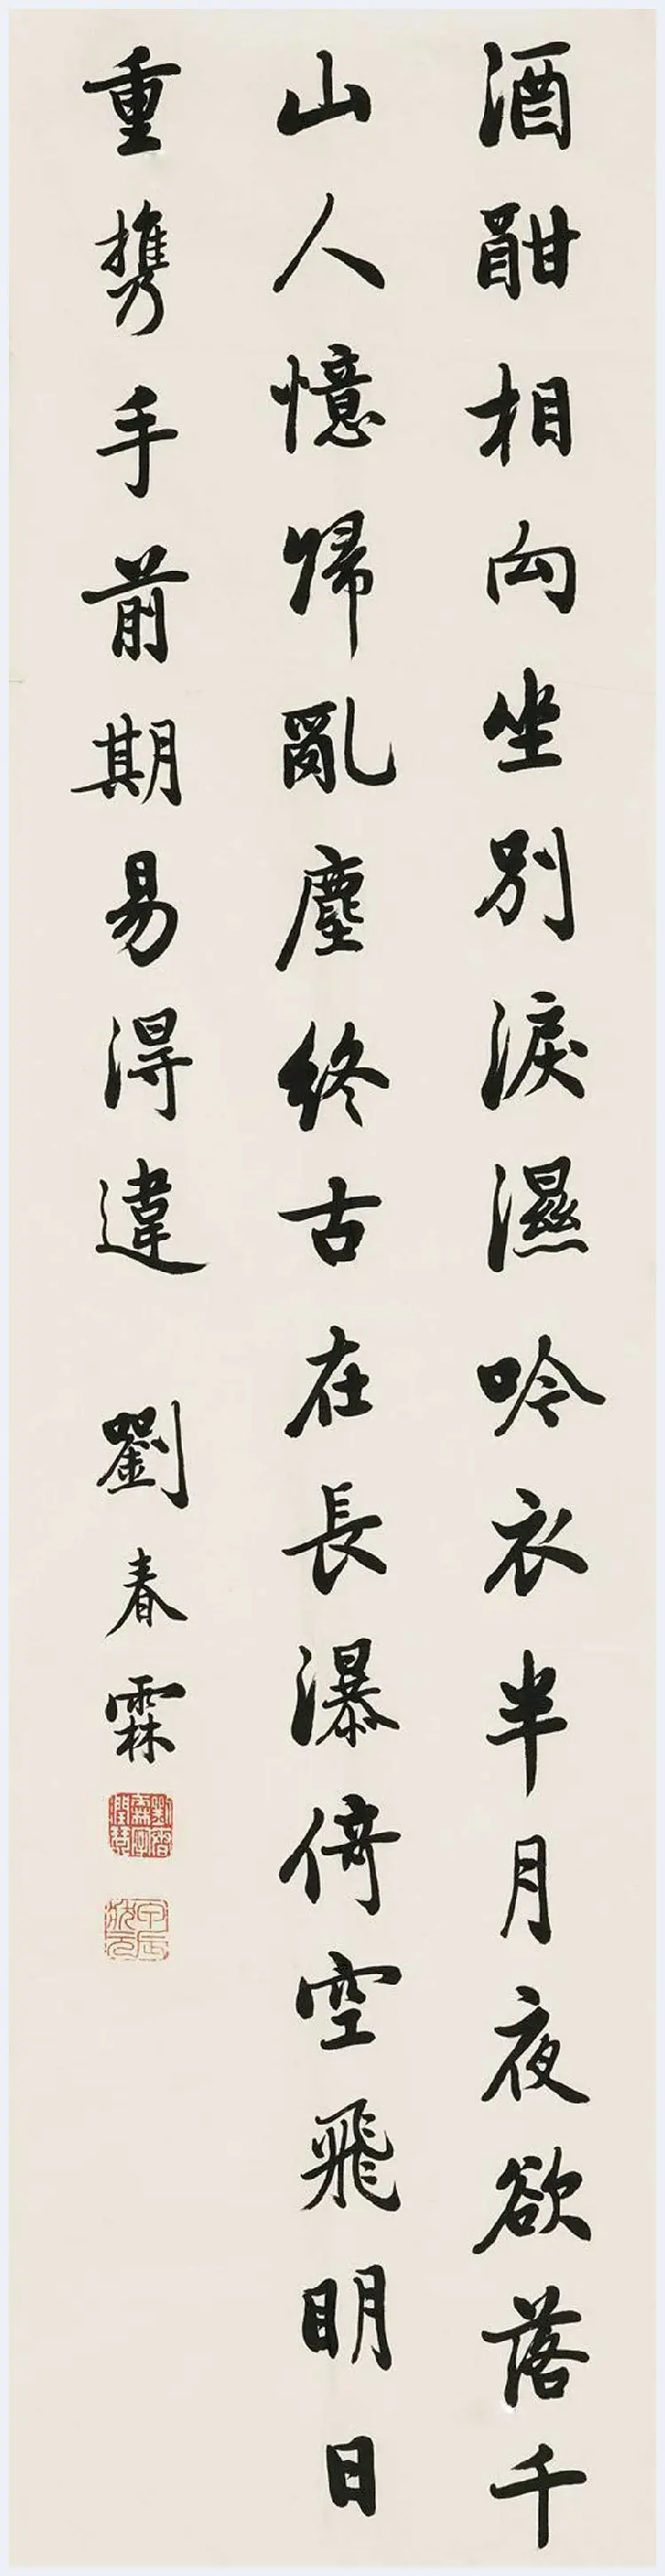 酒酣相向坐別淚濕吟衣半月夜欲落千
山人憶歸亂塵終古在長瀑倚空飛明日
重攜手前期易得違
劉春霖